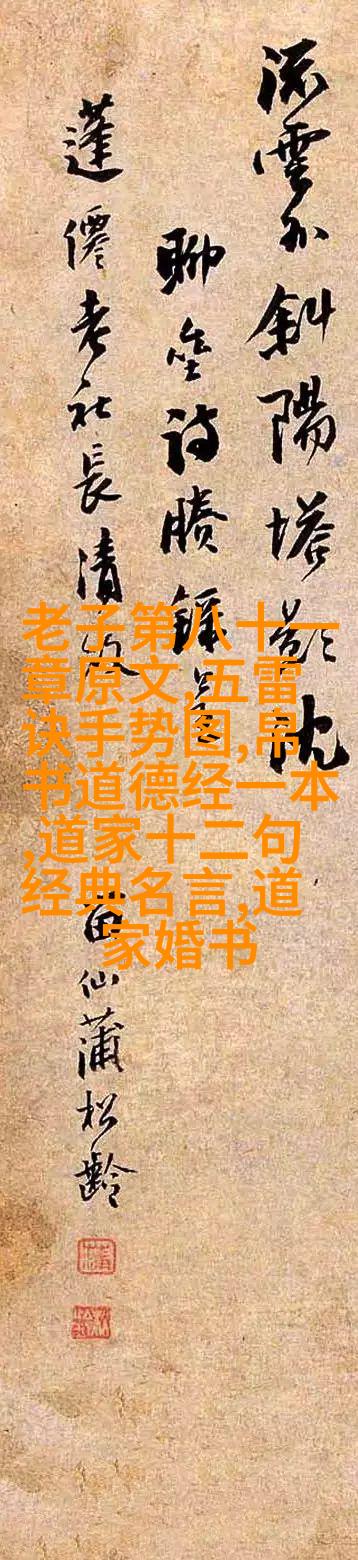 流雲外斜陽塔影沈
聊奎詩賸錄呈
蓬僊老社長清政
留仙蒲松齡
老子第八十一
章原文,五雷
诀手势图,帛
书道德经一本
,道家十二句
经典名言,道
家婚书